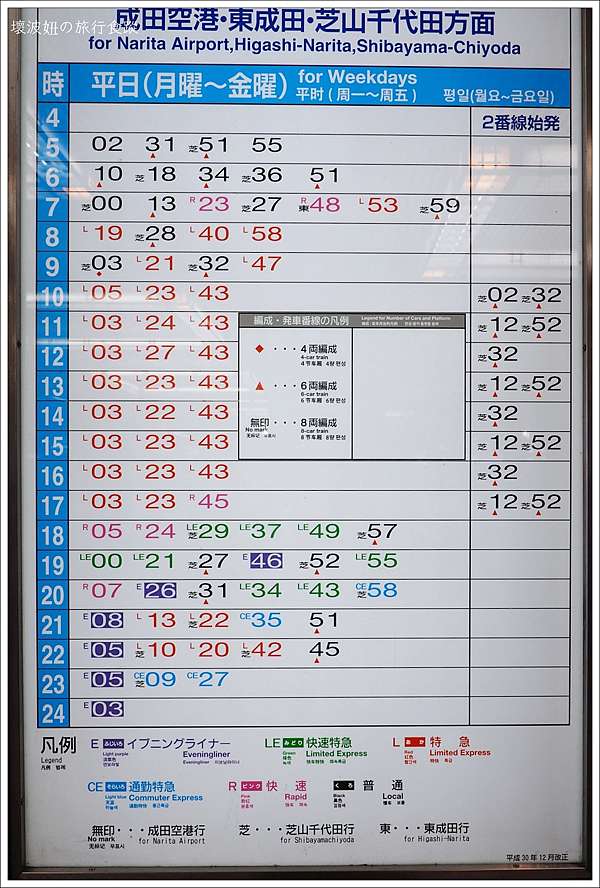 壞波妞の旅行食蹤
成田空港・東成田・芝山千代田方面
for Narita Airport,Higashi-Narita,Shibayama-Chiyoda
時 平日(月曜～金曜) for Weekdays 平时(周一～周五) 평일(월요~금요일)
4 2番線始発
5 02 31▲ 芝51▲ 55
6 10▲ 芝18 34▲ 芝36 51▲
7 芝00 13▲ R23 芝27 R東48 L53 芝59▲
8 L19 芝28▲ L40 L58
9 芝03◆ L21 芝32▲ L47
10 L05 L23 L43 芝02▲ 芝32▲
11 L03 L24 L43 芝12▲ 芝52▲
12 L03 L27 L43 芝32▲
13 L03 L23 L43 芝12▲ 芝52▲
14 L03 L22 L43 芝32▲
15 L03 L23 L43 芝12▲ 芝52▲
16 L03 L23 L43 芝32▲
17 L03 L23 R45 芝12▲ 芝52▲
18 R05 R24 LE芝29 LE37 LE49 芝57▲
19 LE00 LE21 芝27▲ E46 芝52▲ LE55
20 R07 E26 芝31▲ LE34 LE43 CE芝58
21 E08 L13 L芝22 CE35 51▲
22 E05 L芝10 L20 L芝42 45▲
23 E05 CE芝09 CE27
24 E03
編成・発車番線の凡例 Legend for Number of Cars and Platform
◆・・・4両編成
4-car train
4节车厢 4량 편성
▲・・・6両編成
6-car train
6节车厢 6량 편성
無印・・・8両編成
No mark 8-car train
无标记 무표시 8节车厢 8량 편성
凡例 E ふじいろ イブニングライナー LE みどり 快速特急 L あか 特急
Legend Light purple Eveningliner Green Limited Express Red Limited Express
凡例 범례
CE そらいろ 通勤特急 R ピンク 快速 くろ 普通
Light blue Commuter Express Pink Rapid Black Local
無印・・・成田空港行 芝・・・芝山千代田行 東・・・東成田行
No mark for Narita Airport for Shibayamachiyoda for Higashi-Narita
无标记 무표시
平成30年12月改正